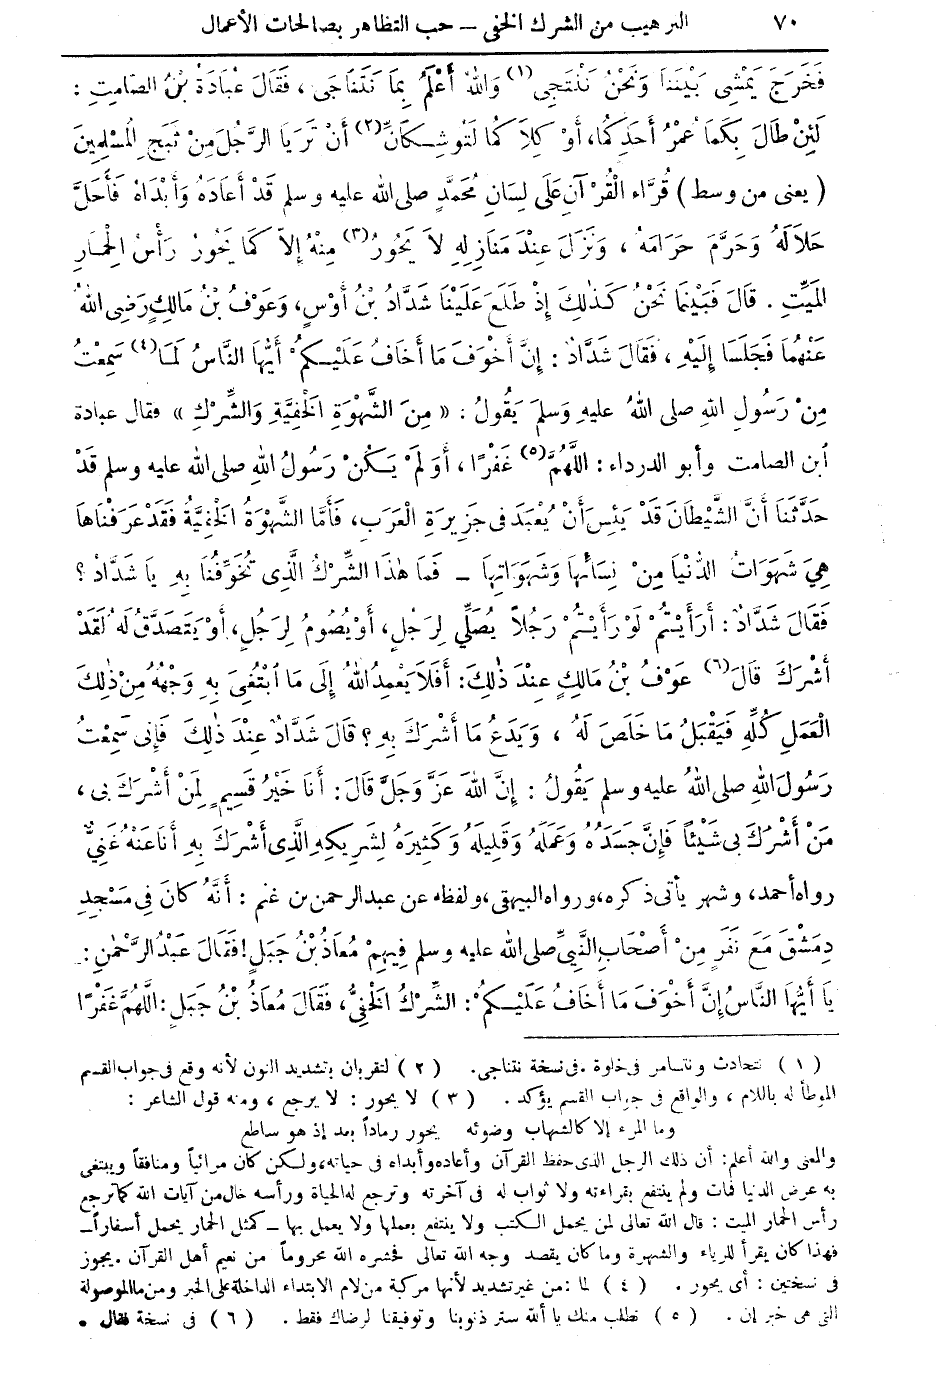 ٧٠ الترهيب من الشرك الخفى – حب التظاهر بصالحات الأعمال
فَخَرَجَ يَمْشِى بَيْنَنَا وَنَحْنُ نَنْتَجِى (١) وَاللهُ أَعْلَمُ بِمَا نَتَنَاجَى ، فَقَالَ عُبَادَةُ بْنُ الصَّامِتِ :
لَئِنْ طَالَ بِكُمَا عُمْرُ أَحَدِكُمَا، أَوْ كِلاَ كُمَا لَتُوشِكَانِّ (٢) أَنْ تَرَيَا الرَّجُلَ مِنْ ثَبَجِ الْمُسْلِمِينَ
( يعنى من وسط ) قُرَّاءِ الْقُرْآنِ عَلَى لِسَانِ مُحَمَّدٍ صلى الله عليه وسلم قَدْ أَعَادَهُ وَأَبْدَاهُ فَأَحَلَّ
حَلَالَهُ وَحَرَّمَ حَرَامَهُ ، وَنَزَلَ عِنْدَ مَنَازِلِهِ لاَ يَحُورُ (٣) مِنْهُ إِلاَّ كَمَا يَحُورُ رَأْسُ الْحِمَارِ
الْمَيِّتِ . قَالَ فَبَيْنَمَا نَحْنُ كَذٰلِكَ إِذْ طَلَعَ عَلَيْنَا شَدَّادُ بْنُ أَوْسٍ، وَعَوْفُ بْنُ مَالِكٍ رَضِىَ اللهُ
عَنْهُمَا فَجَلَسَا إِلَيْهِ ، فَقَالَ شَدَّادٌ : إِنَّ أَخْوَفَ مَا أَخَافُ عَلَيْكُمْ أَيُّهَا النَّاسُ لَمَا (٤) سَمِعْتُ
مِنْ رَسُولِ اللهِ صلى اللهُ عليهِ وَسلمَ يَقُولُ : « مِنَ الشَّهْوَةِ الْخَفِيَّةِ وَالشِّرْكِ » فقال عبادة
ابن الصامت وأبو الدرداء : اللَّهُمَّ (٥) غَفْرًا ، أَوَ لَمْ يَكُنْ رَسُولُ اللهِ صلى الله عليه وسلم قَدْ
حَدَّثَنَا أَنَّ الشَّيْطَانَ قَدْ يَئِسَ أَنْ يُعْبَدَ فى جَزِيرَةِ الْعَرَبِ، فَأَمَّا الشَّهْوَةُ الْخَفِيَّةُ فَقَدْ عَرَفْنَاهَا
هِيَ شَهَوَاتُ الدُّنْيَا مِنْ نِسَائِهَا وَشَهَوَاتِهَا – فَمَا هٰذَا الشِّرْكُ الَّذِى تُخَوِّفُنَا بِهِ يَا شَدَّادُ ؟
فَقَالَ شَدَّادٌ : أَرَأَيْتُمْ لَوْ رَأَيْتُمْ رَجُلاً يُصَلِّي لِرَجُلٍ، أَوْ يَصُومُ لِرَجُلٍ، أَوْ يَتَصَدَّقُ لَهُ لَقَدْ
أَشْرَكَ قَالَ (٦) عَوْفُ بْنُ مَالِكٍ عِنْدَ ذٰلِكَ : أَفَلاَ يَعْمِدُ اللهُ إِلَى مَا ابْتُغِىَ بِهِ وَجْهُهُ مِنْ ذٰلِكَ
الْعَمَلِ كُلِّهِ فَيَقْبَلُ مَا خَلَصَ لَهُ ، وَيَدَعُ مَا أَشْرَكَ بِهِ ؟ قَالَ شَدَّادٌ عِنْدَ ذٰلِكَ فَإِنى سَمِعْتُ
رَسُولَ اللهِ صلى اللهُ عليه وسلم يَقُولُ : إِنَّ اللهَ عَزَّ وَجَلَّ قَالَ : أَنَا خَيْرُ قَسِيمٍ لِمَنْ أَشْرَكَ بى ،
مَنْ أَشْرَكَ بى شَيْئاً فَإِنَّ جَسَدَهُ وَعَمَلَهُ وَقَلِيلَهُ وَكَثِيرَهُ لِشَرِيكِهِ الَّذِى أَشْرَكَ بِهِ أَنَا عَنْهُ غَنِيٌّ
رواه أحمد، وشهر يأتى ذكره، ورواه البيهقى، ولفظه عن عبد الرحمن بن غنم : أَنَّهُ كَانَ فِى مَسْجِدِ
دِمَشْقَ مَعَ نَفَرٍ مِنْ أَصْحَابِ النَّبِيِّ صلى الله عليه وسلم فِيهِمْ مُعَاذُ بْنُ جَبَلٍ! فَقَالَ عَبْدُ الرَّحْمٰنِ :
يَا أَيُّهَا النَّاسُ إِنَّ أَخْوَفَ مَا أَخَافُ عَلَيْكُمْ : الشِّرْكُ الْخَفِيُّ، فَقَالَ مُعَاذُ بْنُ جَبَلٍ : اللَّهُمَّ غَفْرًا
( ١ ) نتحادث ونتسامر فى خلوة . فى نسخة نتناجى. ( ٢ ) لتقربان بتشديد النون لأنه وقع فى جواب القسم
الموطأ له باللام ، والواقع فى جواب القسم يؤكد . ( ٣ ) لا يحور : لا يرجع ، ومنه قول الشاعر :
وما المرء إلا كالشهاب وضوئه يحور رماداً بعد إذ هو ساطع
والمعنى والله أعلم: أن ذلك الرجل الذى حفظ القرآن وأعاده وأبداه فى حياته، ولكن كان مرائياً ومنافقاً ويبتغى
به عرض الدنيا فمات ولم ينتفع بقراءته ولا ثواب له فى آخرته وترجع له الحياة ورأسه خال من آيات الله كما ترجع
رأس الحمار الميت : قال الله تعالى لمن يحمل الكتب ولا ينتفع بعملها ولا يعمل بها – كمثل الحمار يحمل أسفاراً –
فهذا كان يقرأ للرياء والشهرة وما كان يقصد وجه الله تعالى فحشره الله محروماً من نعيم أهل القرآن . يجوز
فى نسختين : أى يحور . ( ٤ ) لما : من غير تشديد لأنها مركبة من لام الابتداء الداخلة على الخبر ومن ما الموصولة
التى هى خبر إن . ( ٥ ) نطلب منك يا ألله ستر ذنوبنا وتوفيقنا لرضاك فقط . ( ٦ ) فى نسخة فقال .